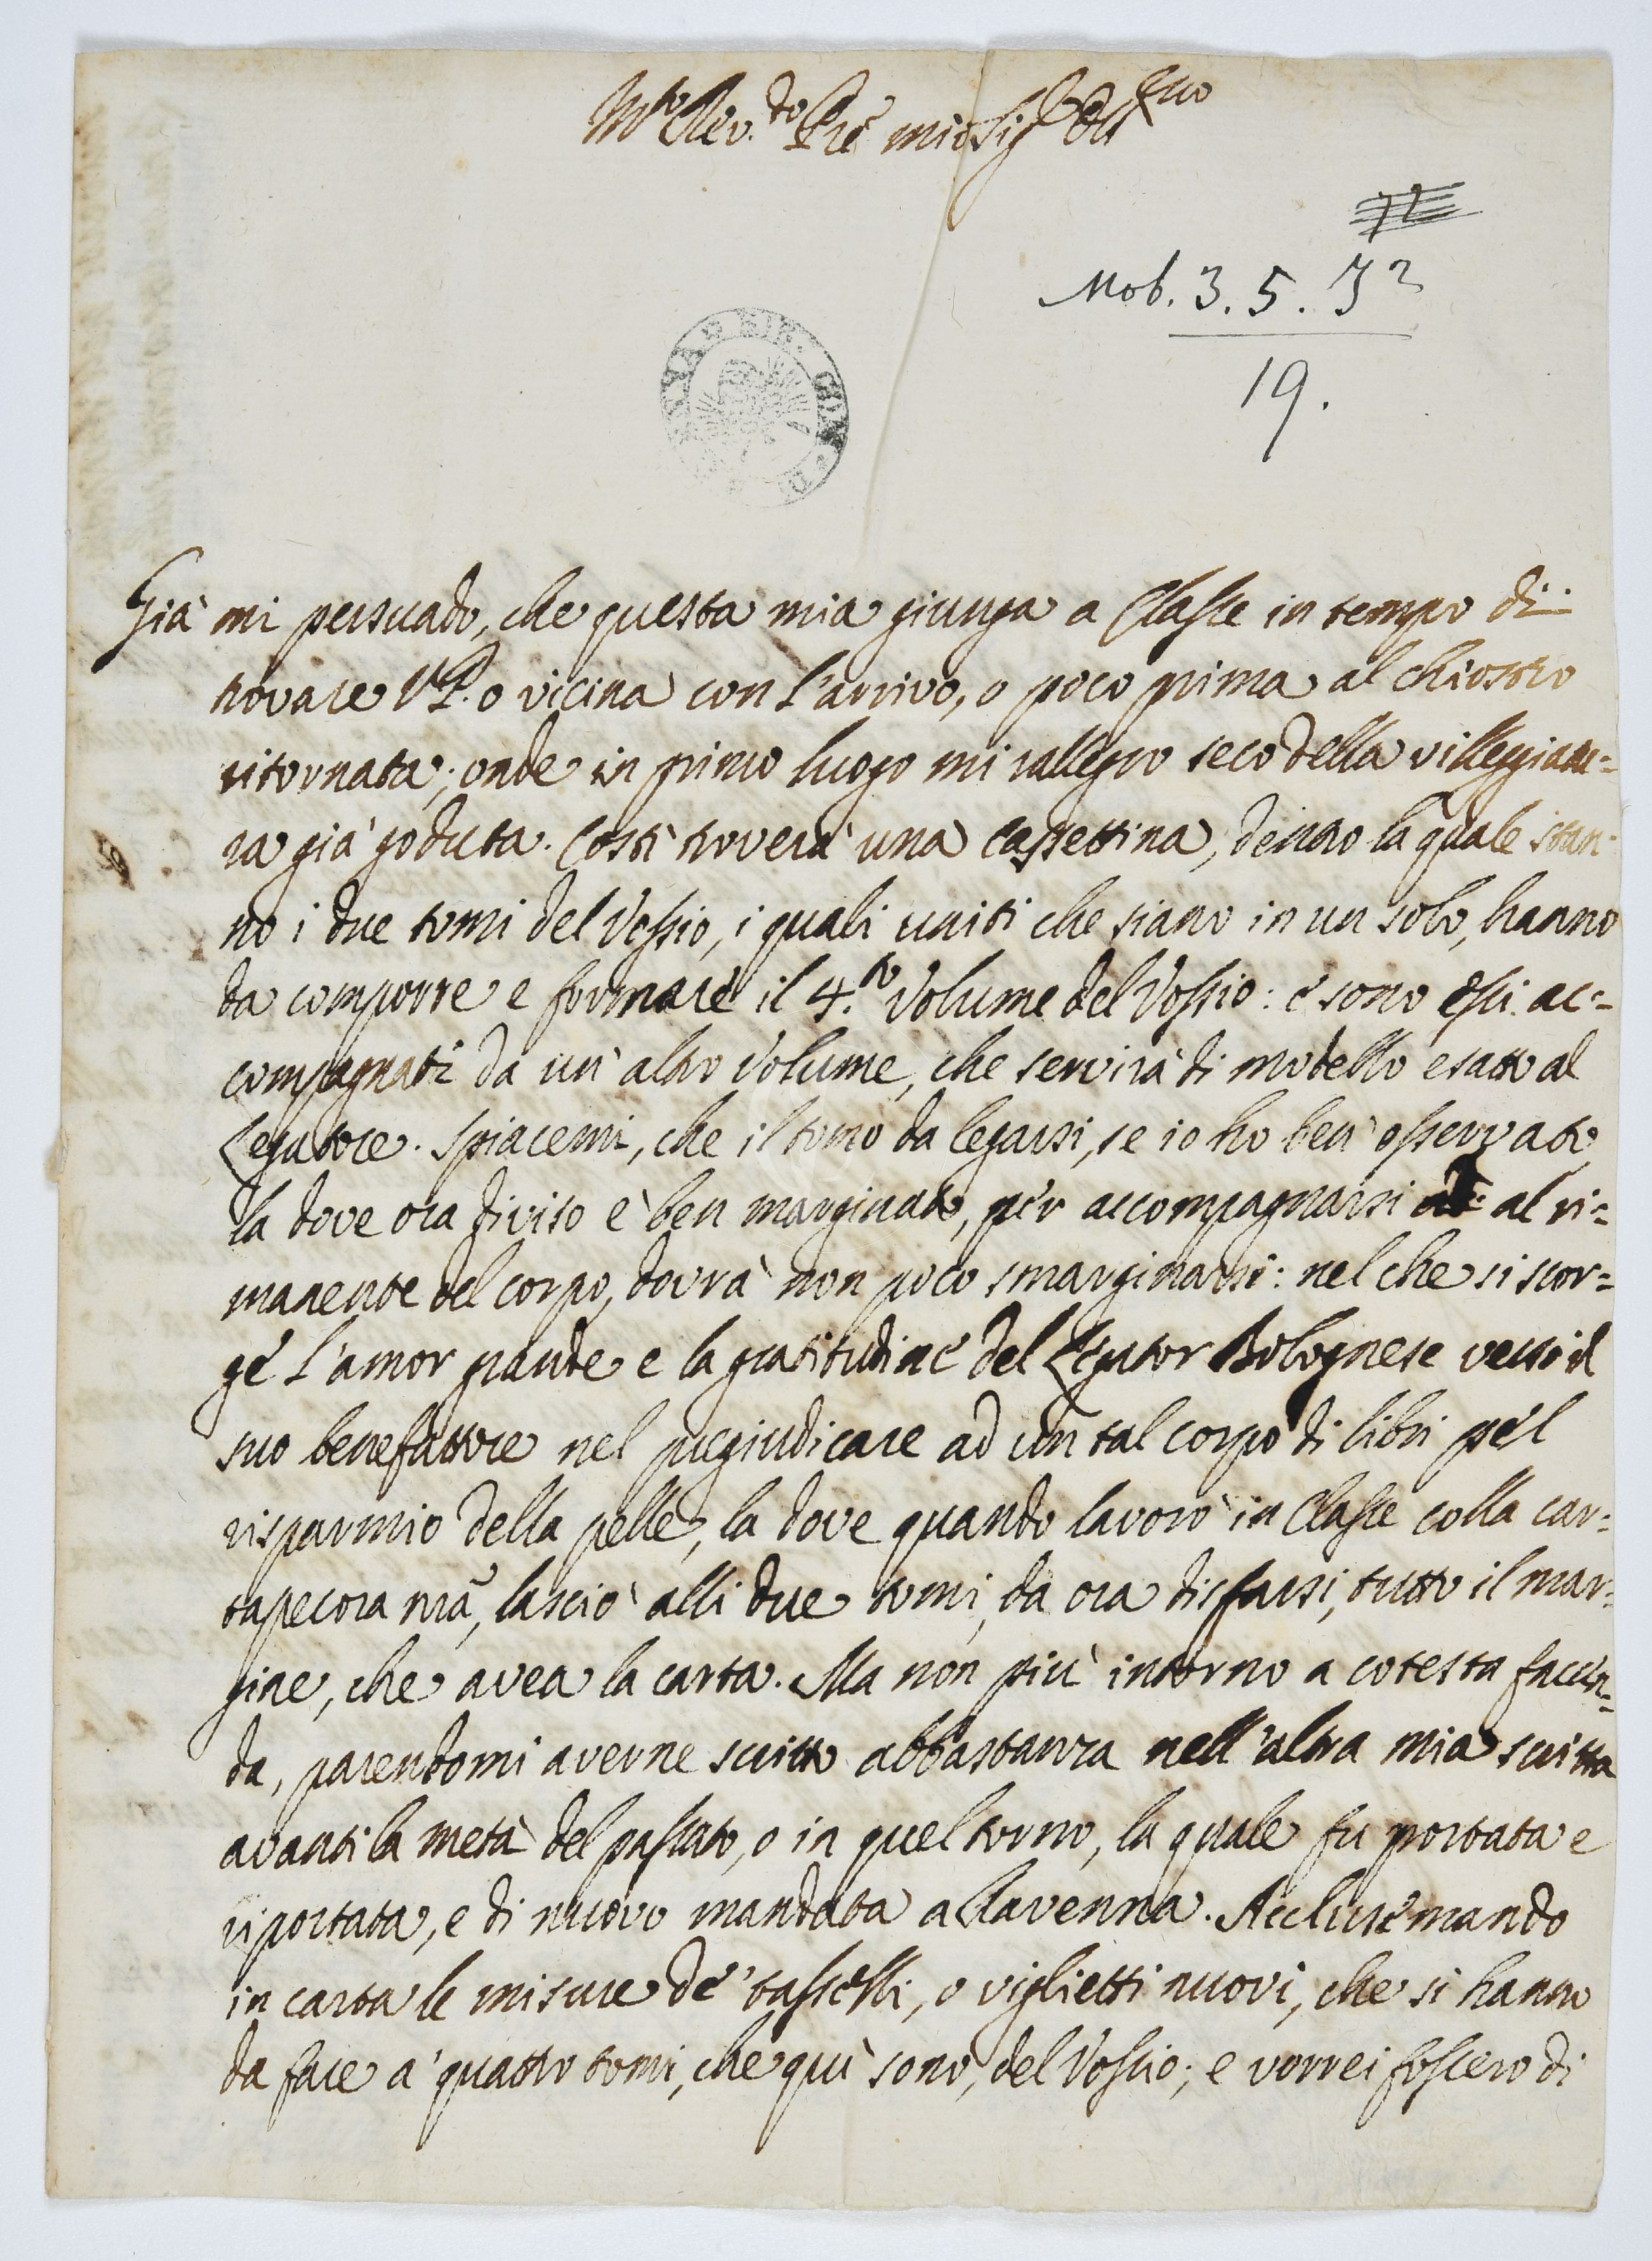 M.to Rev.do Pre mio Sig.r
Mob. 3. 5. J2
19.
Già mi persuado, che questa mia giunga a Classe in tempo di
trovare V.P. o vicina con l'arrivo, o poco prima al chiostro
ritornata; onde in primo luogo mi rallegro seco della villeggiatu=
ra già goduta. Costì troverà una cassettina, dentro la quale stan-
no i due tomi del Vossio, i quali uniti che siano in un solo, hanno
da comporre e formare il 4.to Volume del Vossio: e sono essi ac=
compagnati da un' altro Volume, che servirà di modello esatto al
Legatore. Spiacemi, che il tomo da legarsi, se io ho ben' osservato
la dove ora diviso è ben marginato, per accompagnarsi al ri=
manente del corpo, dovrà non poco smarginarsi: nel che si scor=
ge l'amor grande e la gratitudine del Legator Bolognese verso il
suo benefattore nel pregiudicare ad un tal corpo di libri pel
risparmio della pelle, la dove quando lavorò in Classe colla car=
tapecora nrã, lasciò alli due tomi, da ora disfarsi, tutto il mar=
gine, che avea la carta. Ma non più intorno a cotesta faccen=
da, parendomi averne scritto abbastanza nell'altra mia scritta
avanti la metà del passato, o in quel torno, la quale fu portata e
riportata, e di nuovo mandata a Ravenna. Accluse mando
in carta le misure de' tasselli, o viglietti nuovi, che si hanno
da fare a' quattro tomi, che quì sono, del Vossio; e vorrei fossero di